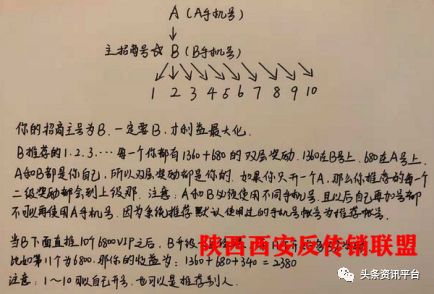 A (A手机号)
主招商号☆ B (B手机号)
1 2 3 4 5 6 7 8 9 10
你的招商主号为B,一定要B,才利益最大化.
B推荐的1.2.3.…每一个你都有1360+680的双层奖励.1360在B号上,680在A号上,
A和B都是你自己,所以双层奖励都是你的.如果你只开一个A,那么你推荐的每一个
二级奖励都会到上级那.注意:A和B必须使用不同手机号,且以后自再加号都
不可以再使用A手机号,因为系统推荐默认使用过的手机号
当B下面直推10个6800VIP之后,B升级
比如第11个为6800,那你的收益为:1360+680+340=2380
注意:1~10可以自己开,也可以是推荐别人.
陕西西安反传销联盟
头条资讯平台